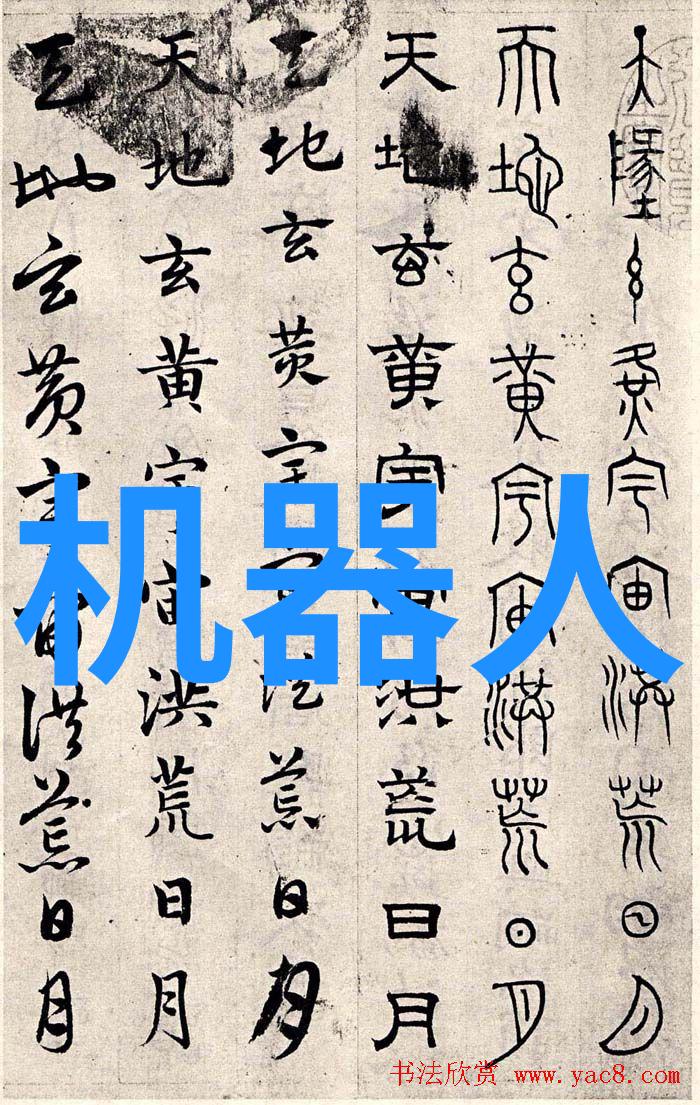 天地玄黄宇宙洪荒日月
天地玄黄宇宙洪荒日月
天地玄黄宇宙洪荒日月
天地玄黄宇宙洪荒日月
天地玄黄宇宙洪荒日月
天地玄黄宇宙洪荒日月
机器人
书法欣赏 www.yac8.com